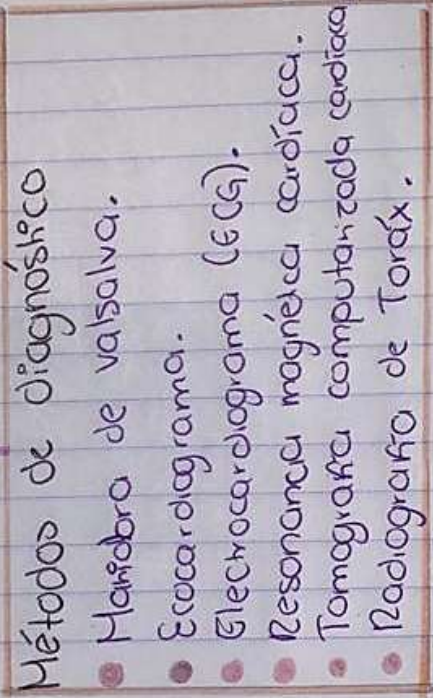 Métodos de diagnóstico
Maniobra de valsalva.
Ecocardiograma.
Electrocardiograma (ECG).
Resonancia magnética cardíaca.
Tomografia computarizada cardíaca
Radiografia de Toráx.